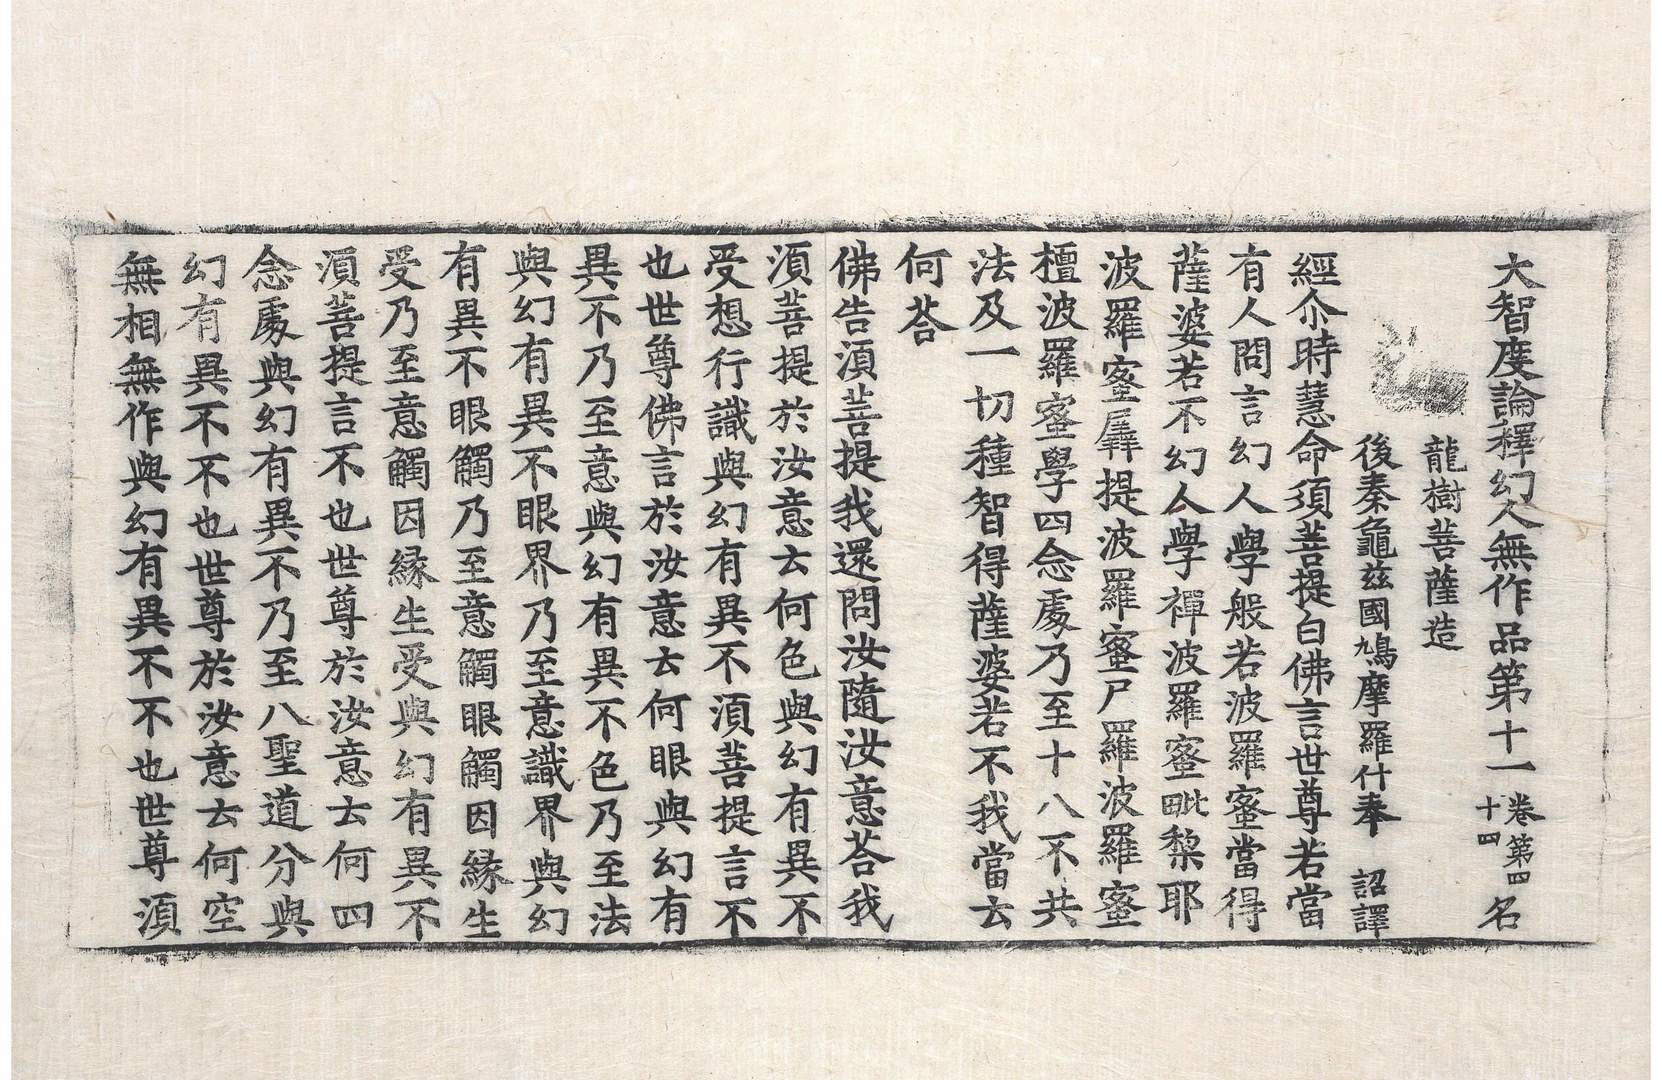 大智度論釋幻人無作品第十一 卷第四十四 名
龍樹菩薩造
後秦龜茲國鳩摩羅什奉 詔譯
經尒時慧命須菩提白佛言世尊若當
有人問言幻人學般若波羅蜜當得
薩婆若不幻人學禪波羅蜜毗梨耶
波羅蜜羼提波羅蜜尸羅波羅蜜
檀波羅蜜學四念處乃至十八不共
法及一切種智得薩婆若不我當云
何荅
佛告湏菩提我還問汝隨汝意荅我
湏菩提於汝意云何色與幻有異不
受想行識與幻有異不湏菩提言不
也世尊佛言於汝意云何眼與幻有
異不乃至意與幻有異不色乃至法
與幻有異不眼界乃至意識界與幻
有異不眼觸乃至意觸眼觸因緣生
受乃至意觸因緣生受與幻有異不
湏菩提言不也世尊於汝意云何四
念處與幻有異不乃至八聖道分與
幻有異不不也世尊於汝意云何空
無相無作與幻有異不不也世尊湏